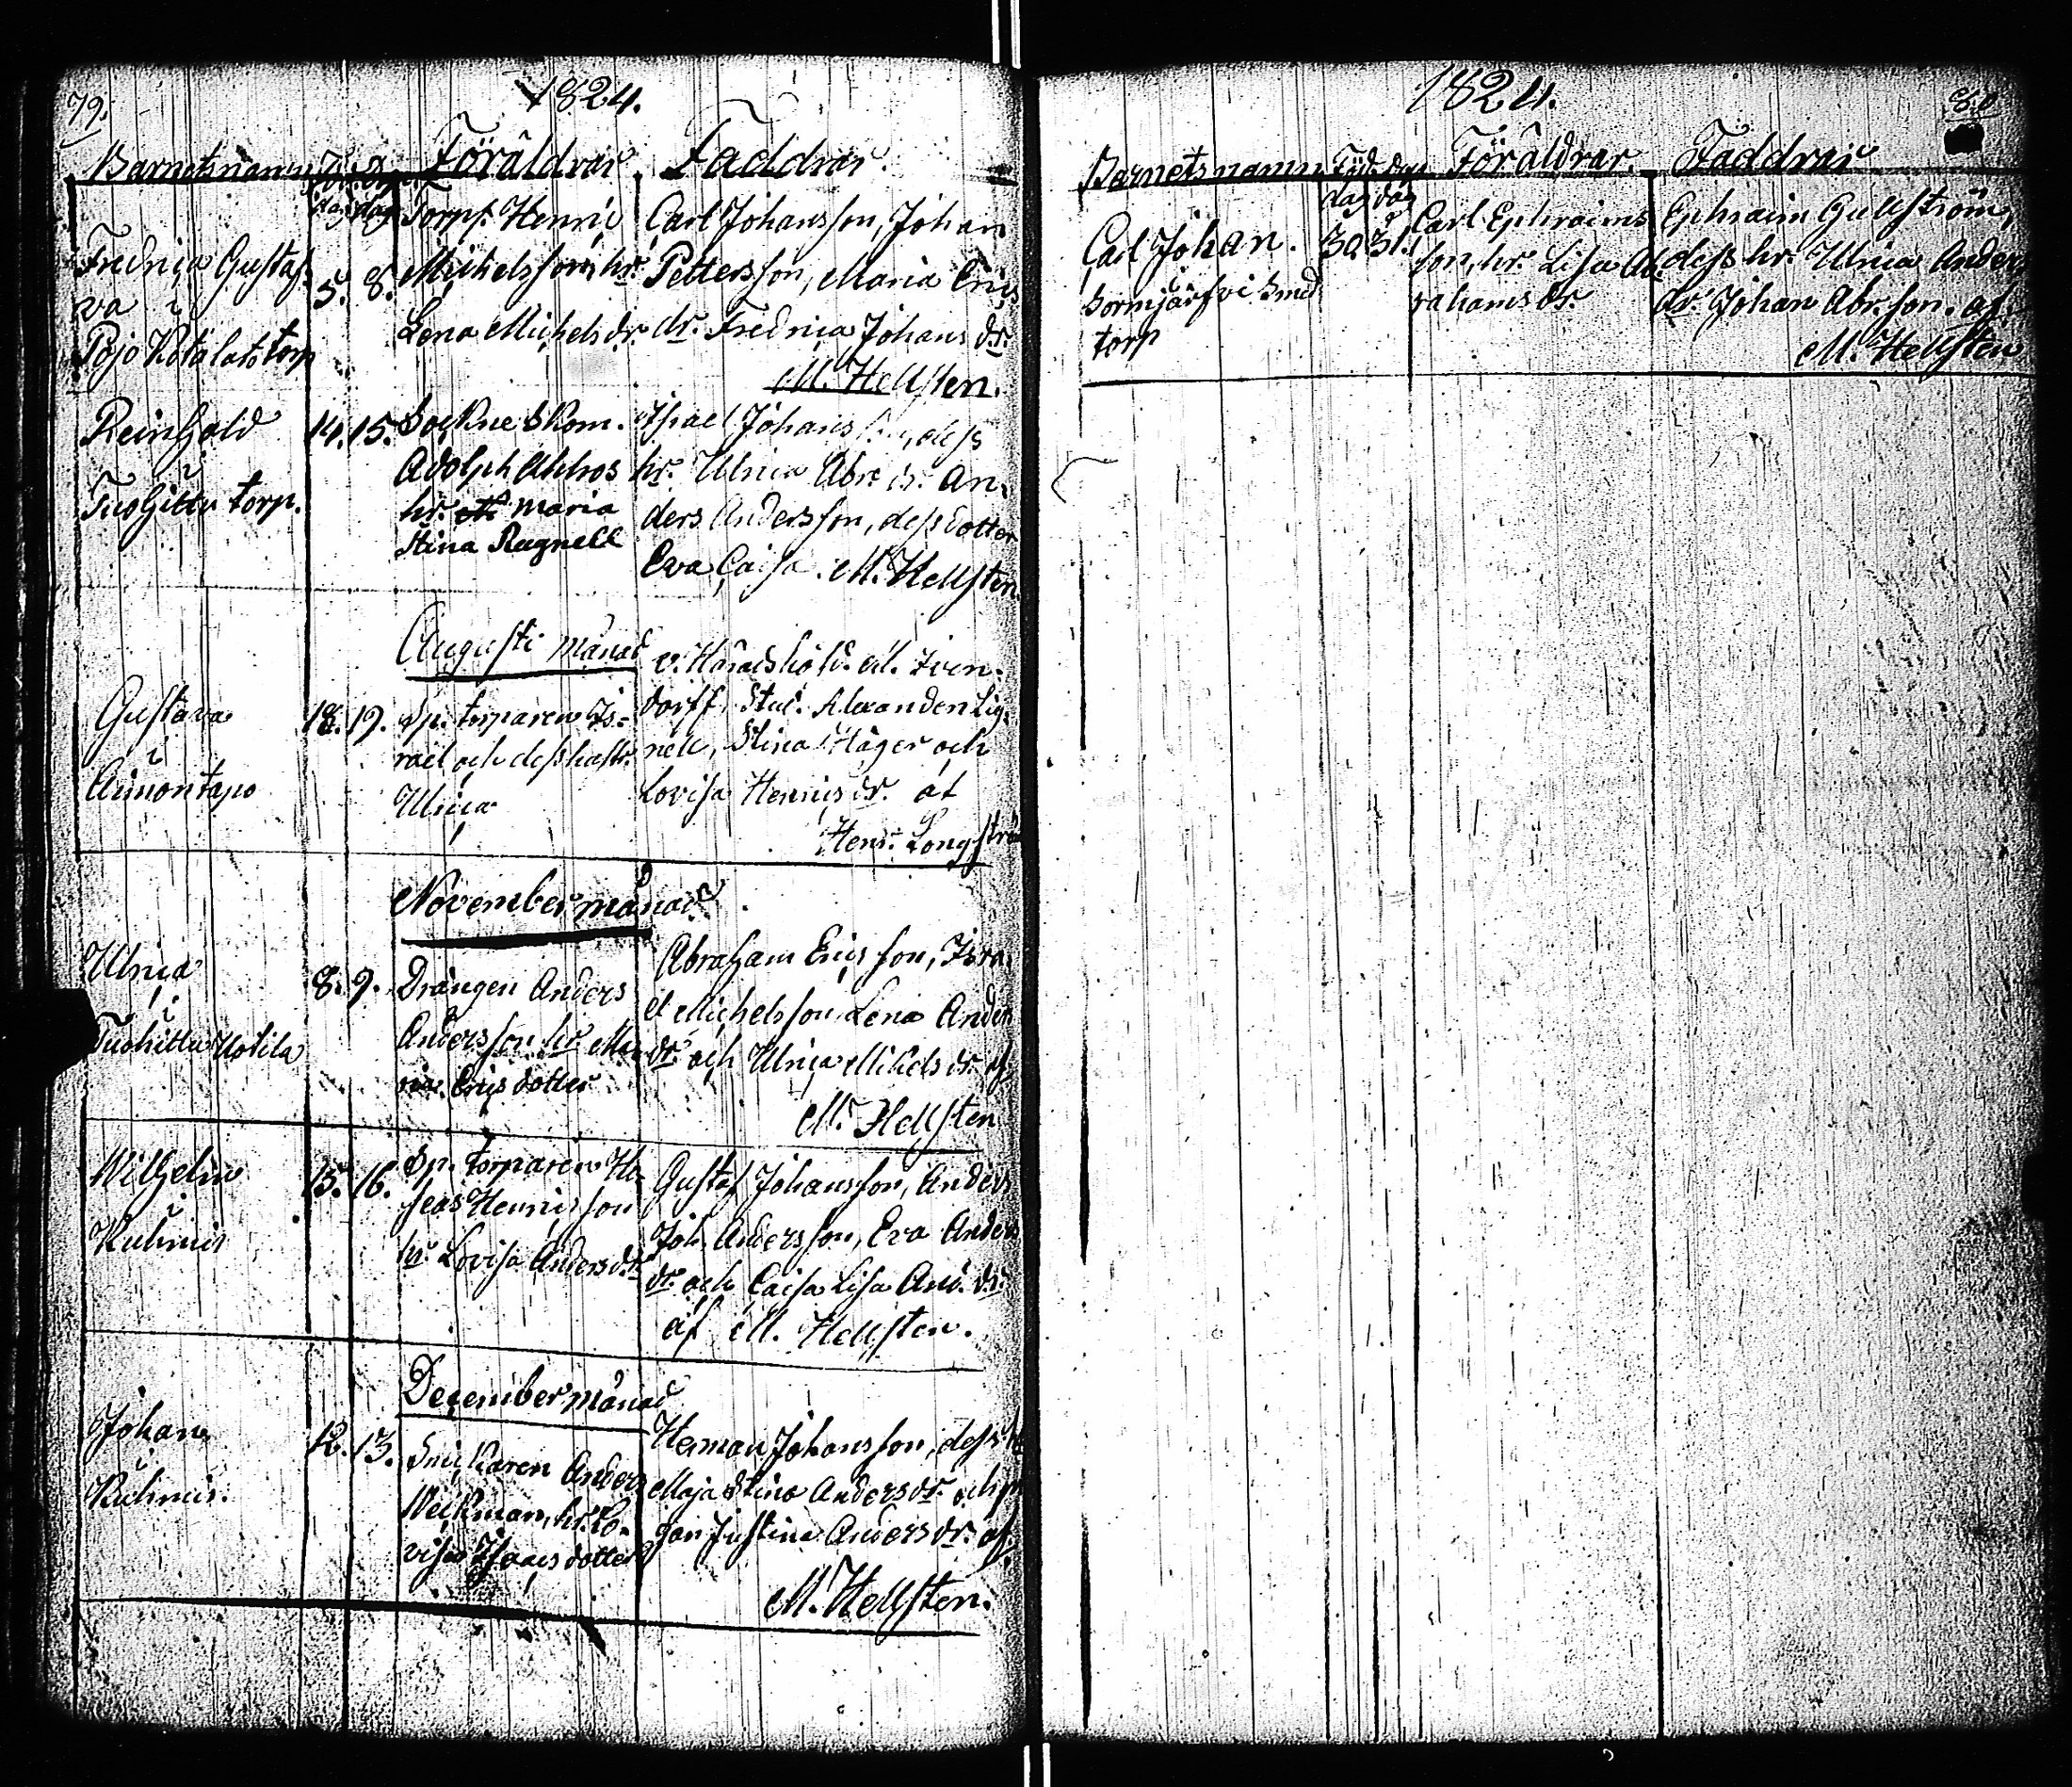 79.
1824.
Barnets namn Föd. Dop. Föräldrar. Faddrar.
dag dag
Fredrica Gustaf-
va i
Pojo Kotalato torp
5. 8.
Torp. Henric
Michelsson, hr.
Lena Michels dr.
Carl Johansson, Johan
Pettersson, Maria Erics
dr. Fredrica Johans dr.
M. Hellsten.
Reinhold
i
Tuohittu torp.
14. 15.
Sockne Skom.
Adolph Ahlros
hr. Maria
Stina Rugnell
Israel Johansson, dess
hr. Ulrica Abr. dr. An-
ders Andersson, dess dotter
Eva Caisa. M. Hellsten
Augusti månad
Gustava
i
Aimontapo
18. 19.
Sp. torparen Is-
rael och dess hustr.
Ulrica
v. Häradshöfd. M. Iven-
dorff, Stud. Alexander Lig-
nell, Stina Häger och
Lovisa Henrics dr. af
Henr. Longströ
November månad
Ulrica
i
Tuohittu Uotila
8. 9.
Drängen Anders
Andersson hr. Ma-
ria Erics dotter
Abraham Ericsson, Isra-
el Michelsson, Lena Anders
dr. och Ulrica Mikels dr. af
M. Hellsten
Wilhelm
i
Kuhmis
15. 16.
Sp. torparen Ho-
seas Henricsson
hr. Lovisa Anders dr.
Gustaf Johansson, Anders
Joh. Andersson, Eva Anders
dr. och Caisa Lisa And. dr.
af M. Hellsten.
December månad
Johan
i
Kuhmis.
12. 13.
Snickaren Anders
Weckman, hr. Lo-
visa Isaacs dotter
Herman Johansson, dess hr
Maja Stina Anders dr. och p
gan Justina Anders dr. af
M. Hellsten.
1824.
80
Barnets namn Föd. Dop Föräldrar. Faddrar
dag dag
Carl Johan.
i
Sormjärfvi Smed
torp
30. 31.
Carl Ephraims
son, hr. Lisa Ab-
rahams dr.
Ephraim Gullström,
dess hr. Ulrica Anders
dr. Johan Abr. son. af
M. Hellsten